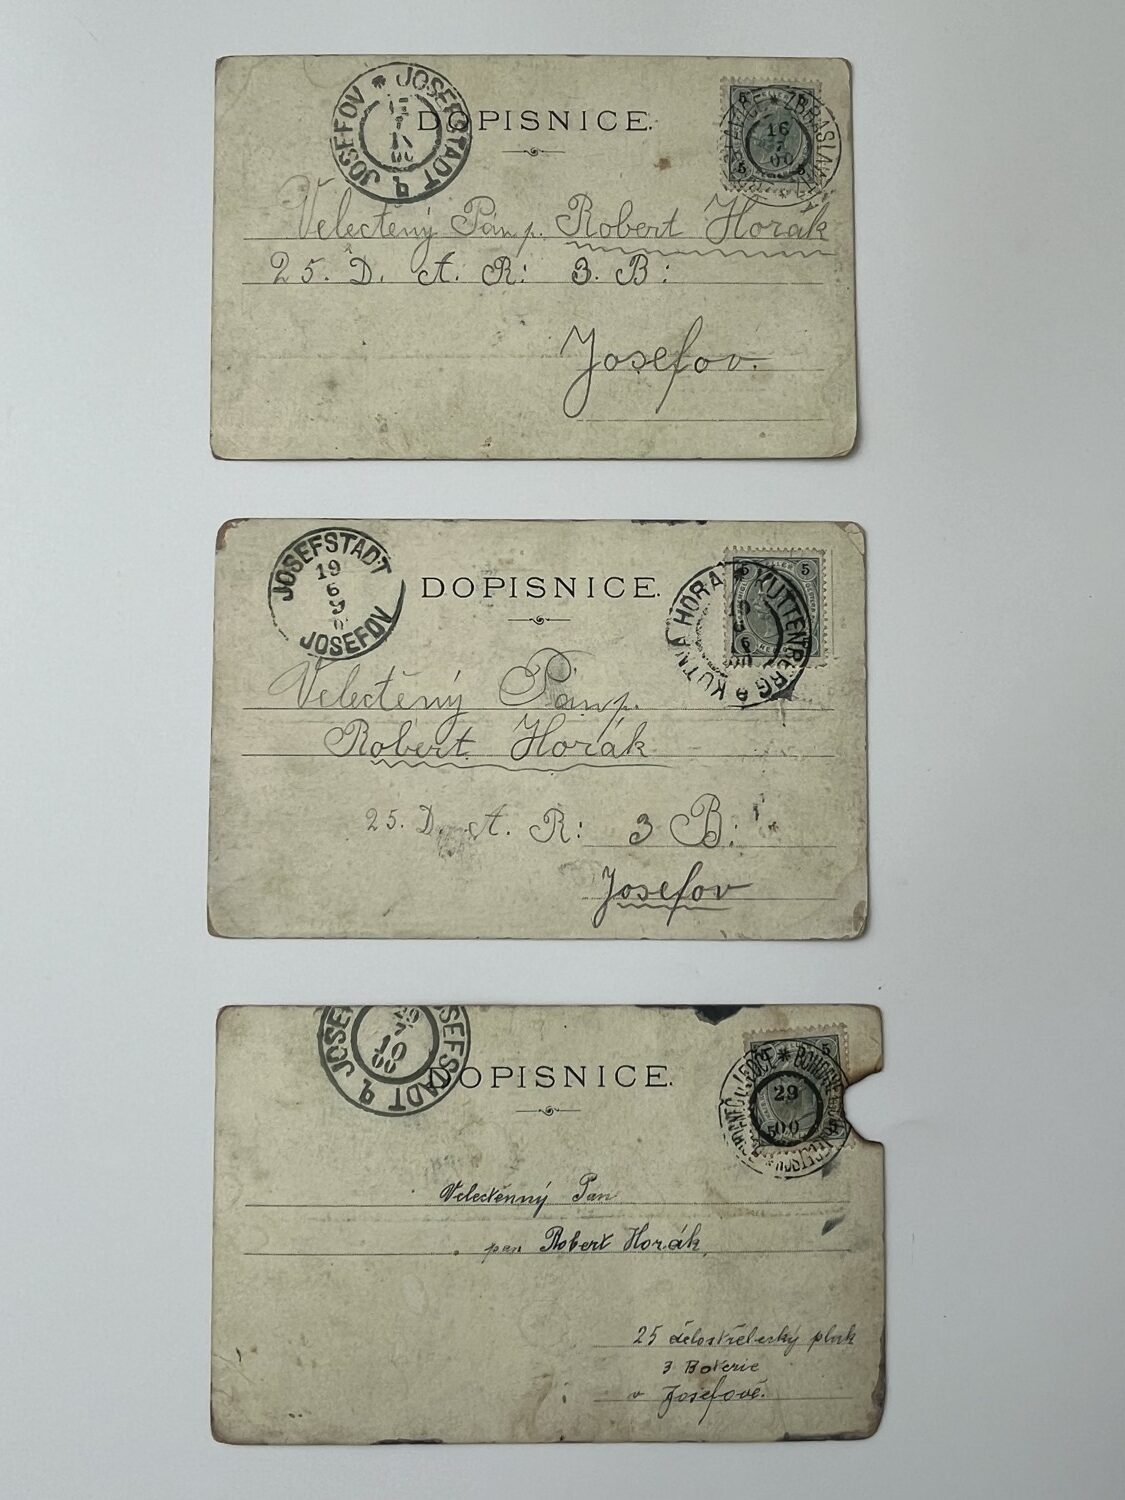 JOSEFOV * JOSEFSTADT
17
7
00
DOPISNICE.
5 5
ZBRASLAVICE
16
7
00
Velectěný Pán p. Robert Horák
25. D. A. R: 3. B:
Josefov.
JOSEFSTADT
19
6
JOSEFOV
DOPISNICE.
5 5
KUTNÁ HORA * KUTTENBERG
00
Velectěný Pán p.
Robert Horák
25. D. A. R: 3 B:
Josefov
JOSEFSTADT
7
10
00
DOPISNICE.
5
29
5 00
Velectěnný Pan
pan Robert Horák,
25 dělostřelecký pluk
3 Baterie
v Josefově.